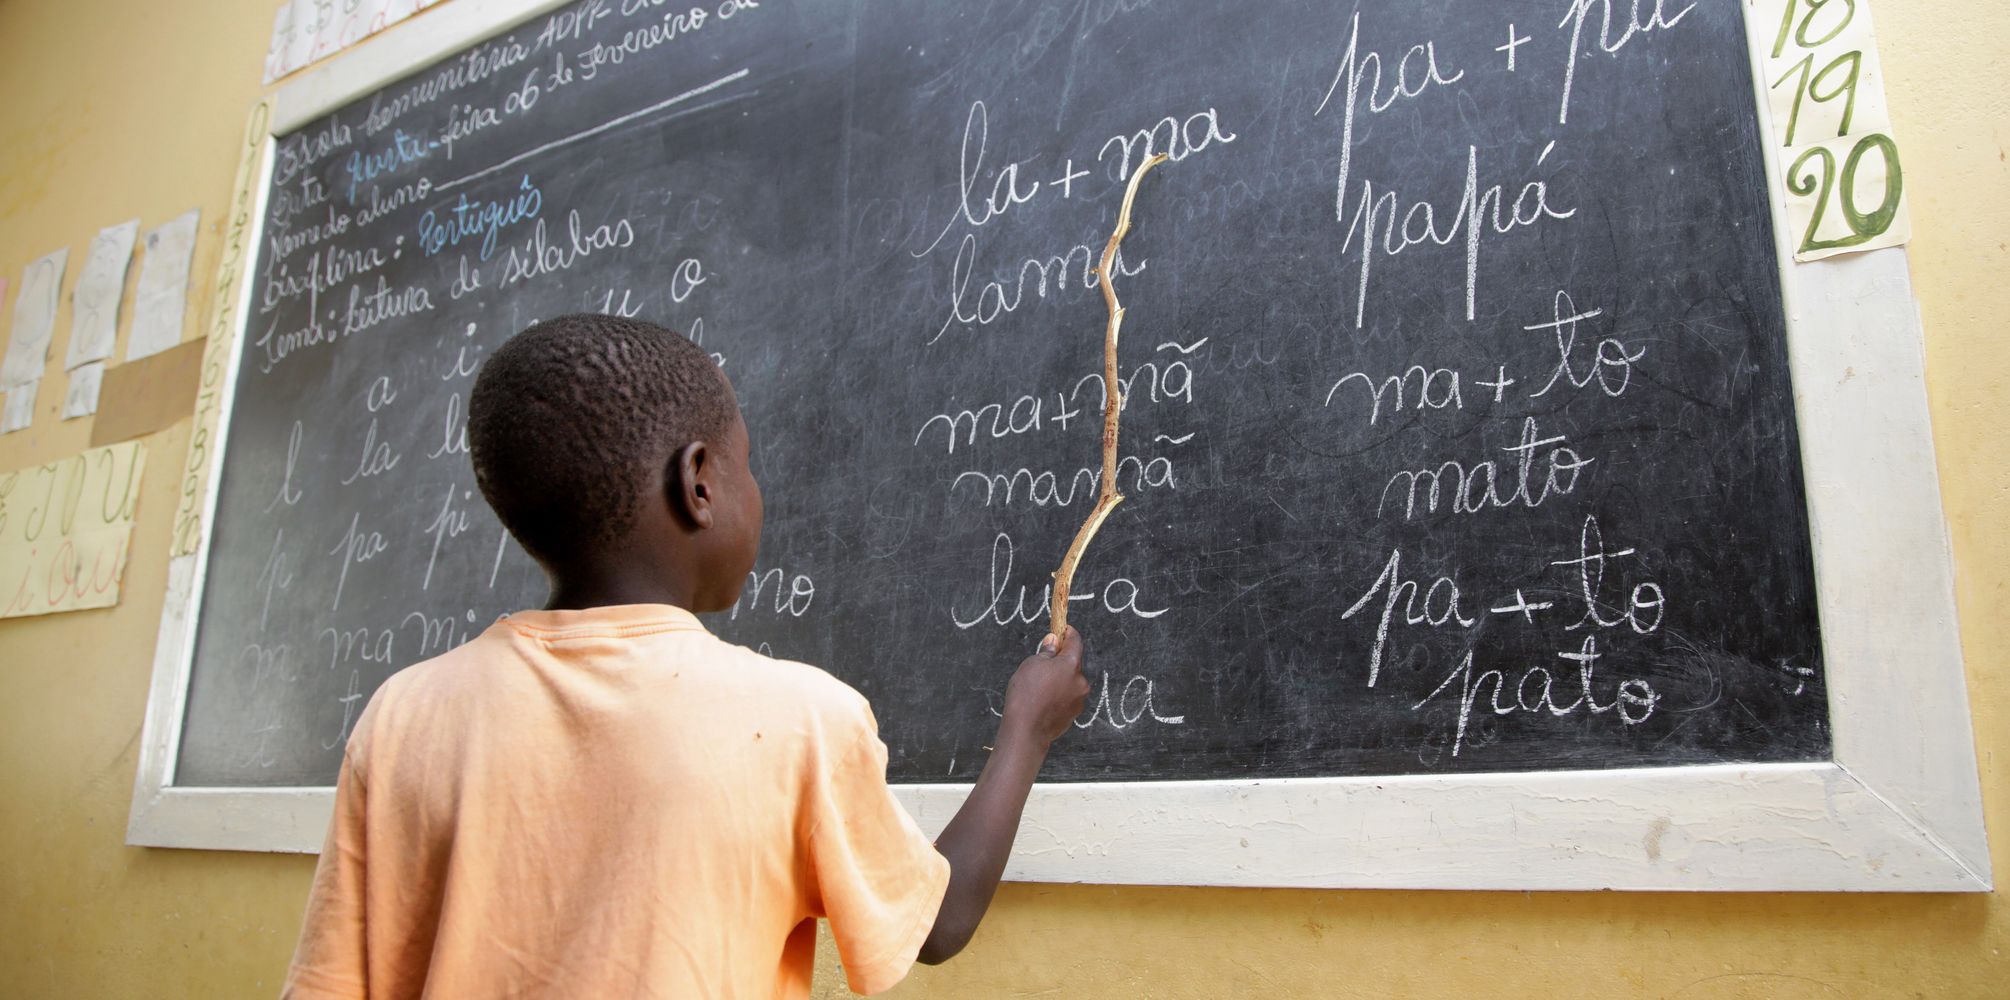 Escola Comunitária ADPP
Data Quarta-feira 06 de Fevereiro de
Nome do aluno
Disciplina: Português
Tema: Leitura de sílabas
a i u o
l la
p pa pi
m ma mi mo
t
la + ma
lama
ma + mã
mamã
lu-a
pa + pa
papá
ma + to
mato
pa + to
pato
18
19
20
i o u